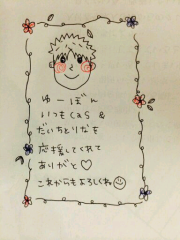 ゆーぼん
いつもCas &
だいちとりなを
応援してくれて
ありがと♡
これからもよろしくね☺